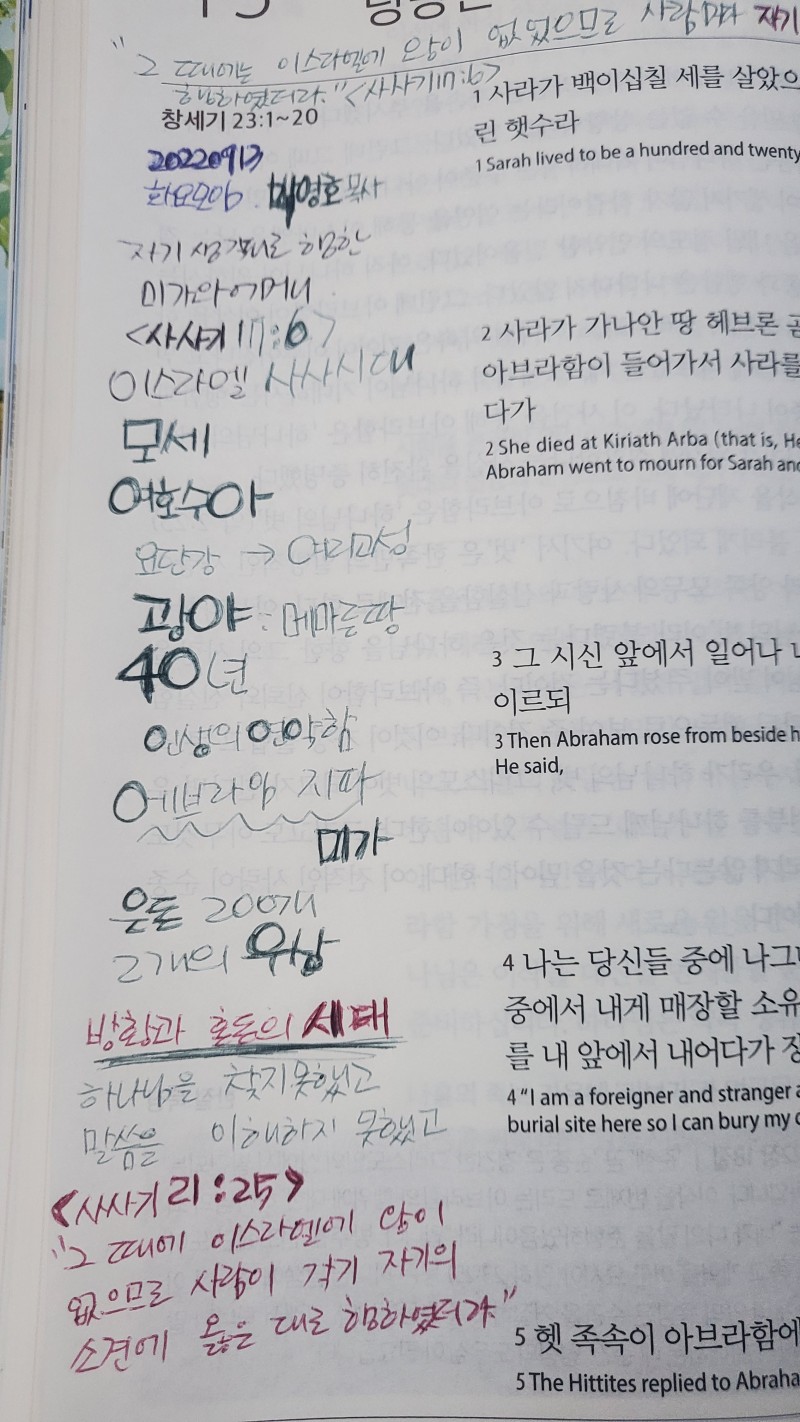 13
"그 때에는 이스라엘에 왕이 없었으므로 사람마다 자기
행하였더라." <사사기 17:6>
창세기 23:1~20
20220913
화요모임.        목사
자기 생각대로 행한
미가와 어머니
<사사기 17:6>
이스라엘 사사시대
모세
여호수아
요단강 → 여리고성
광야 : 메마른 땅
40년
인생의 연약함
에브라임 지파
미가
은돈 200개
2개의 우상
방황과 혼돈의 세대
하나님을 찾지못했고
말씀을 이해하지 못했고
<사사기 21:25>
"그 때에 이스라엘에 왕이
없으므로 사람이 각기 자기의
소견에 옳은 대로 행하였더라."
1 사라가 백이십칠 세를 살았으
린 햇수라
1 Sarah lived to be a hundred and twenty
2 사라가 가나안 땅 헤브론 곧
아브라함이 들어가서 사라를
다가
2 She died at Kiriath Arba (that is, He
Abraham went to mourn for Sarah and
3 그 시신 앞에서 일어나 나
이르되
3 Then Abraham rose from beside h
He said,
4 나는 당신들 중에 나그
중에서 내게 매장할 소유
를 내 앞에서 내어다가 장
4 "I am a foreigner and stranger a
burial site here so I can bury my
5 헷 족속이 아브라함에
5 The Hittites replied to Abraha